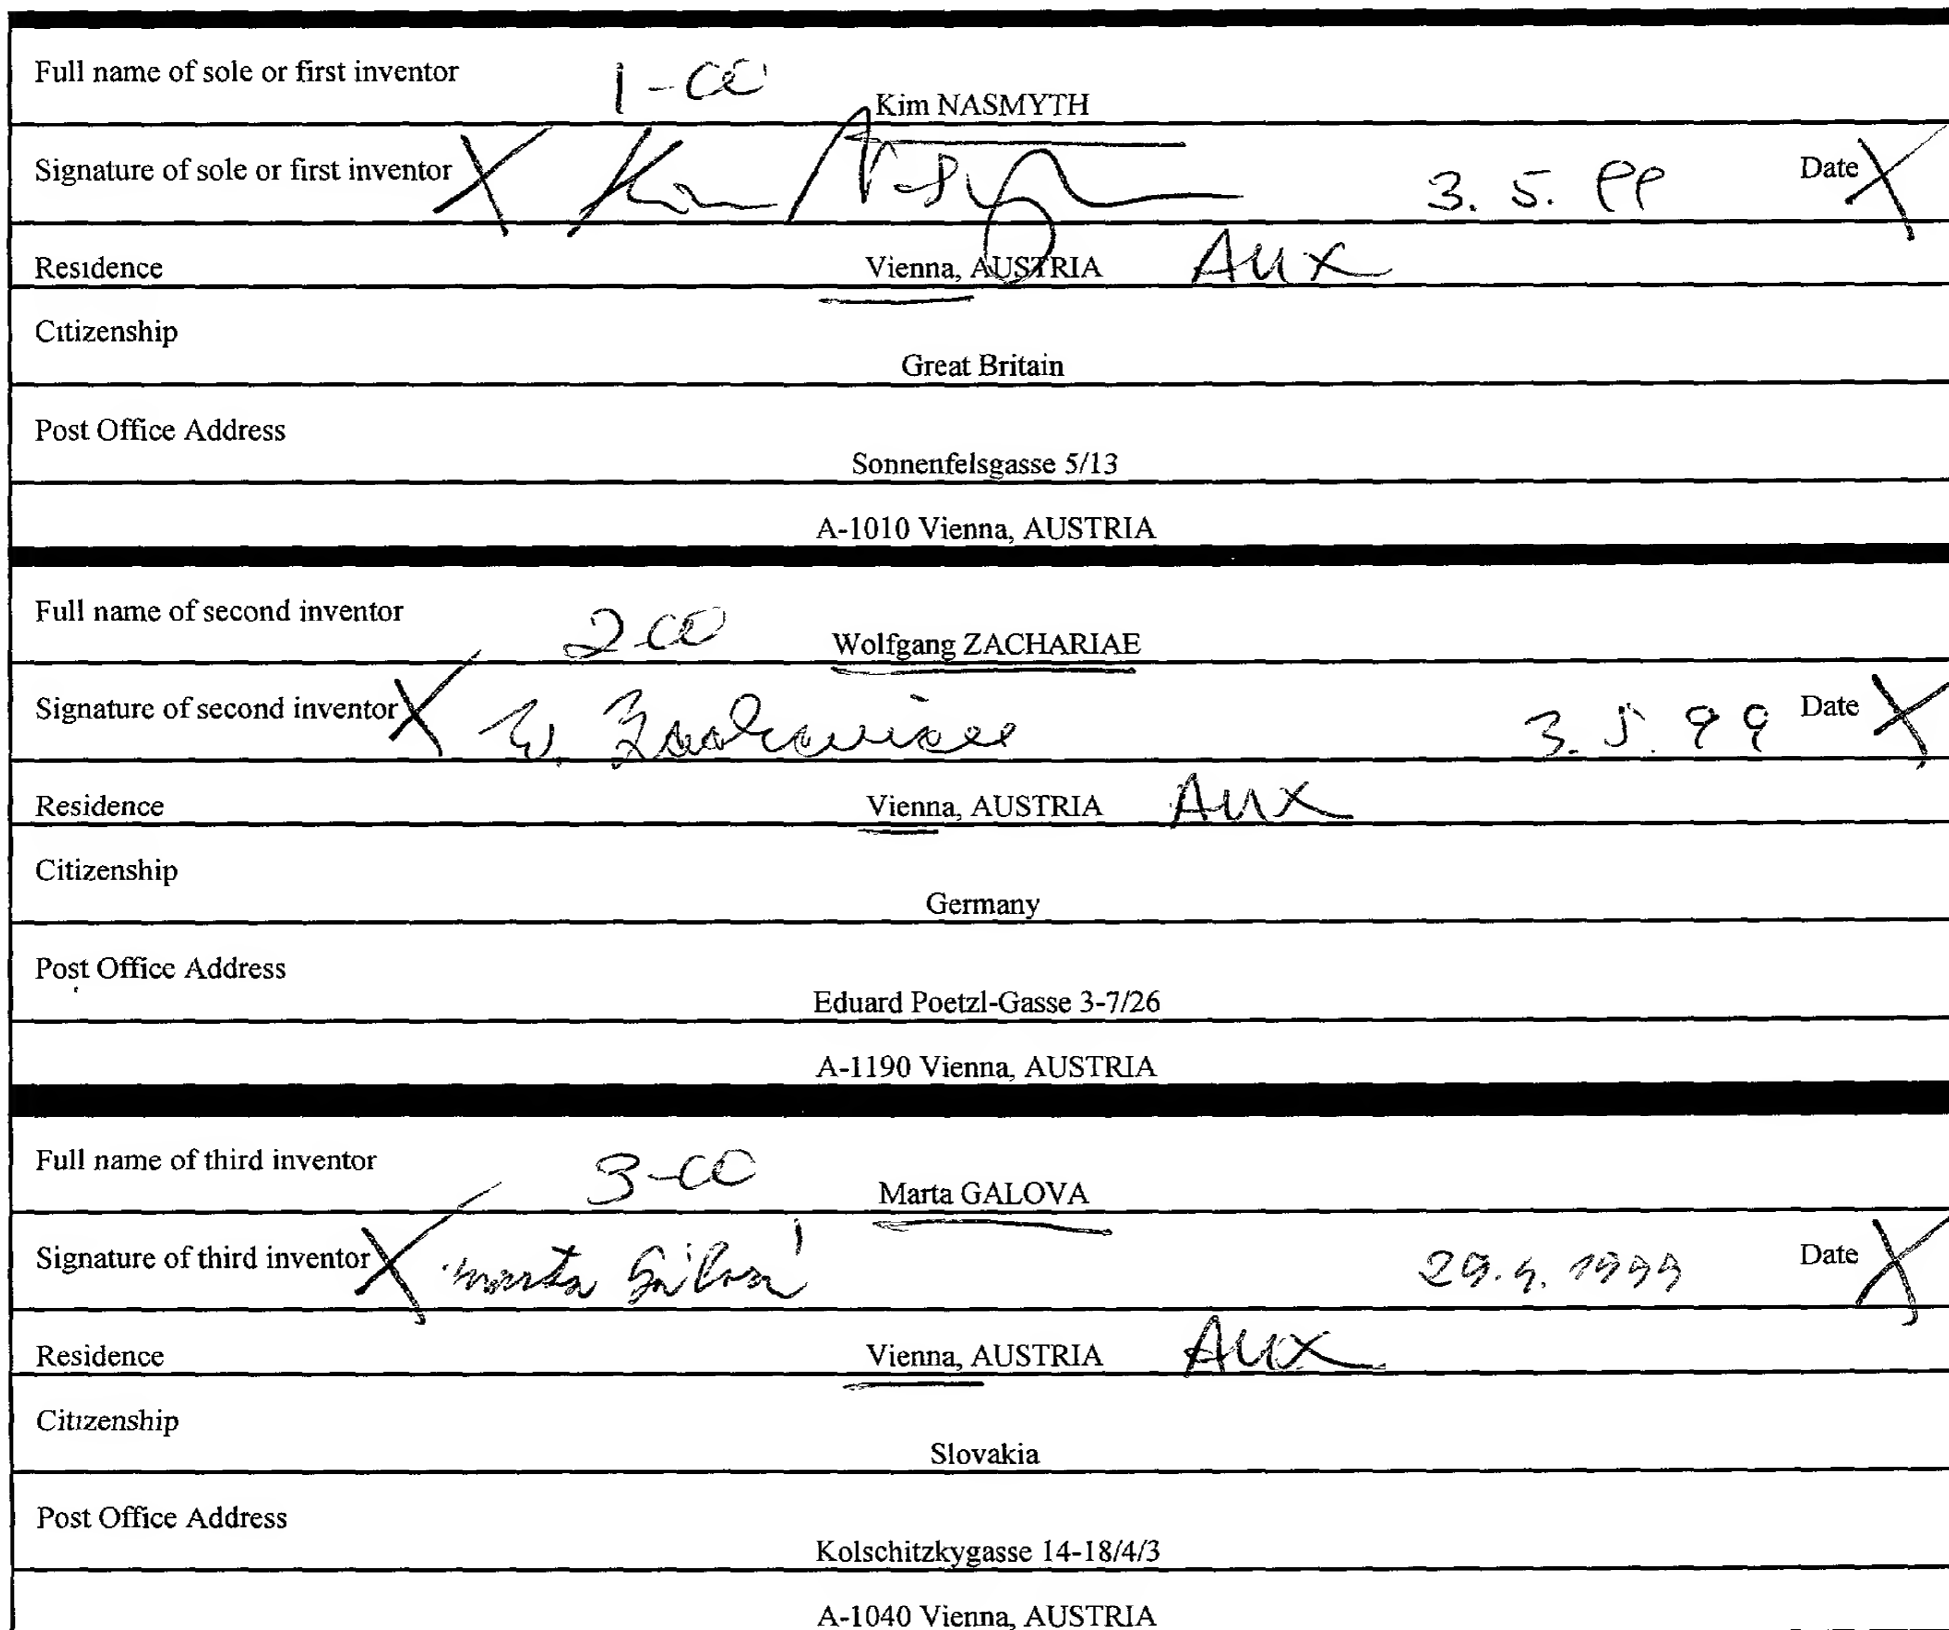 Full name of sole or first inventor 1-CC
Kim NASMYTH
Signature of sole or first inventor X Kim Nasmyth 3. 5. 99 Date X
Residence Vienna, AUSTRIA AUX
Citizenship
Great Britain
Post Office Address
Sonnenfelsgasse 5/13
A-1010 Vienna, AUSTRIA
Full name of second inventor 2-CC
Wolfgang ZACHARIAE
Signature of second inventor X W. Zachariae 3. 5. 99 Date X
Residence Vienna, AUSTRIA AUX
Citizenship
Germany
Post Office Address
Eduard Poetzl-Gasse 3-7/26
A-1190 Vienna, AUSTRIA
Full name of third inventor 3-CC
Marta GALOVA
Signature of third inventor X Marta Galová 29.4.1999 Date X
Residence Vienna, AUSTRIA AUX
Citizenship
Slovakia
Post Office Address
Kolschitzkygasse 14-18/4/3
A-1040 Vienna, AUSTRIA